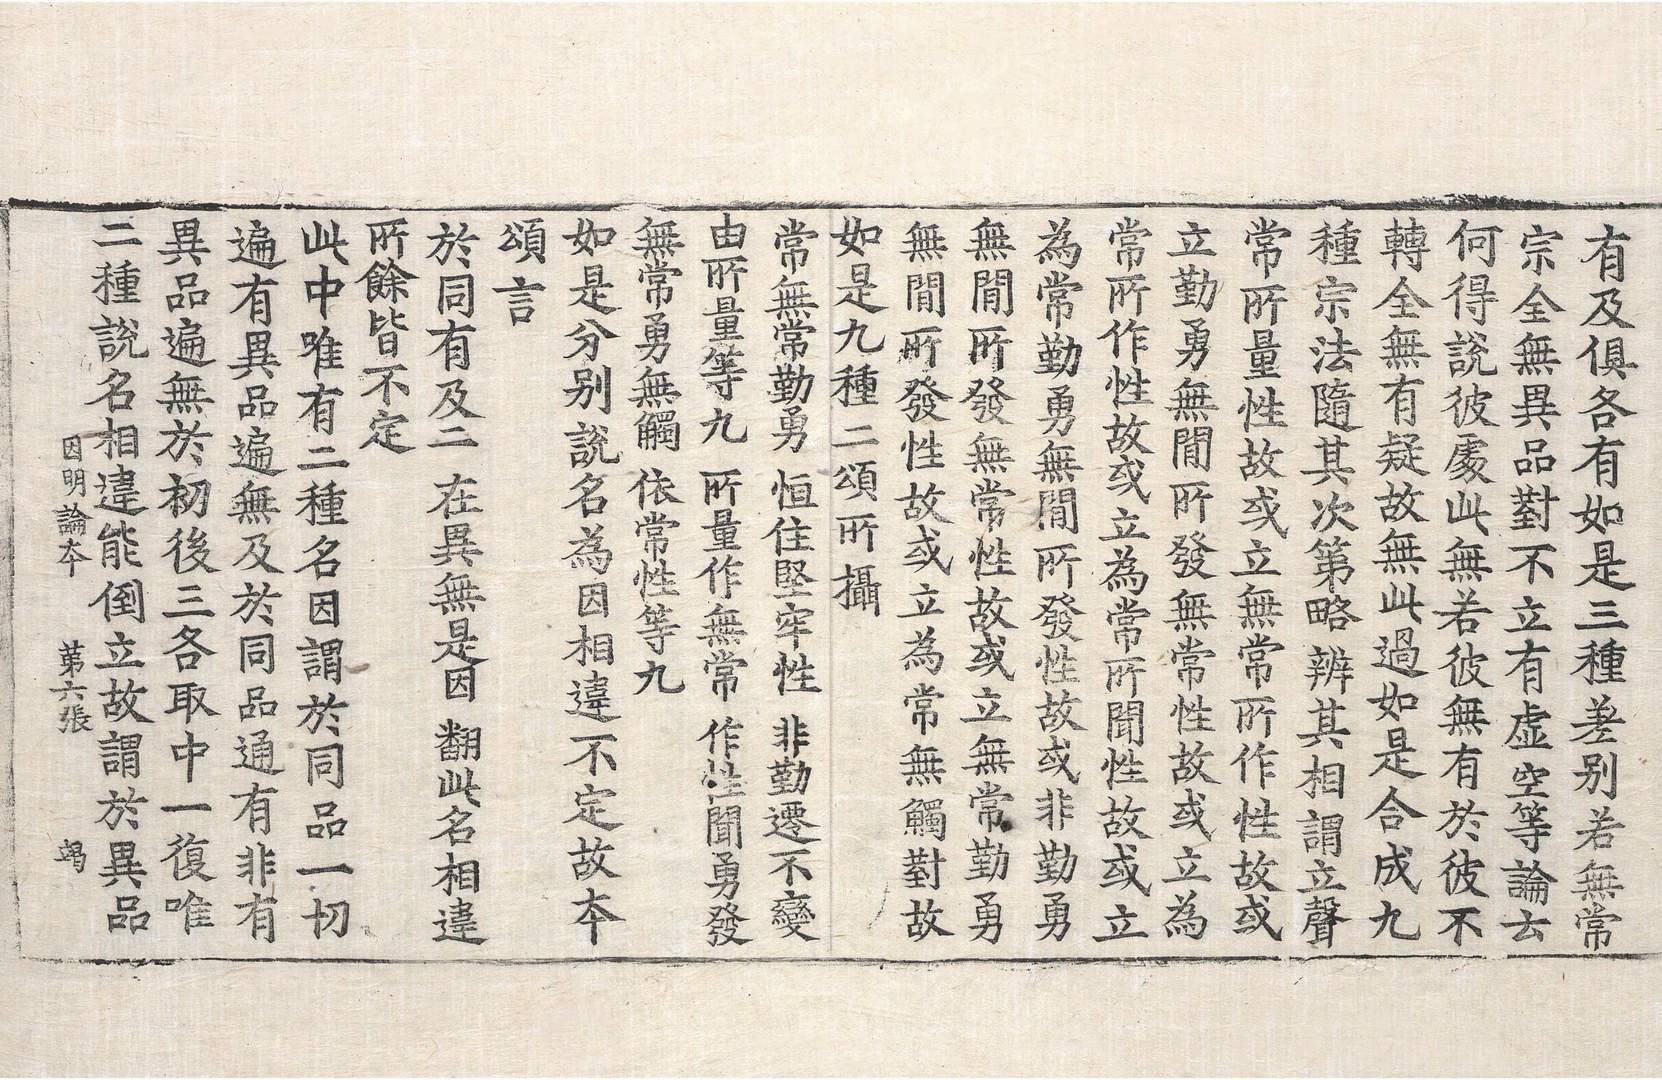 有及俱各有如是三種差别若無常
宗全無異品對不立有虛空等論云
何得說彼處此無若彼無有於彼不
轉全無有疑故無此過如是合成九
種宗法隨其次第略辨其相謂立聲
常所量性故或立無常所作性故或
立勤勇無間所發無常性故或立為
常所作性故或立為常所聞性故或立
為常勤勇無間所發性故或非勤勇
無間所發無常性故或立無常勤勇
無間所發性故或立為常無觸對故
如是九種二頌所攝
常無常勤勇 恒住堅牢性 非勤遷不變
由所量等九 所量作無常 作性聞勇發
無常勇無觸 依常性等九
如是分别說名為因相違不定故本
頌言
於同有及二 在異無是因 翻此名相違
所餘皆不定
此中唯有二種名因謂於同品一切
遍有異品遍無及於同品通有非有
異品遍無於初後三各取中一復唯
二種說名相違能倒立故謂於異品
因明論本 第六張 竭